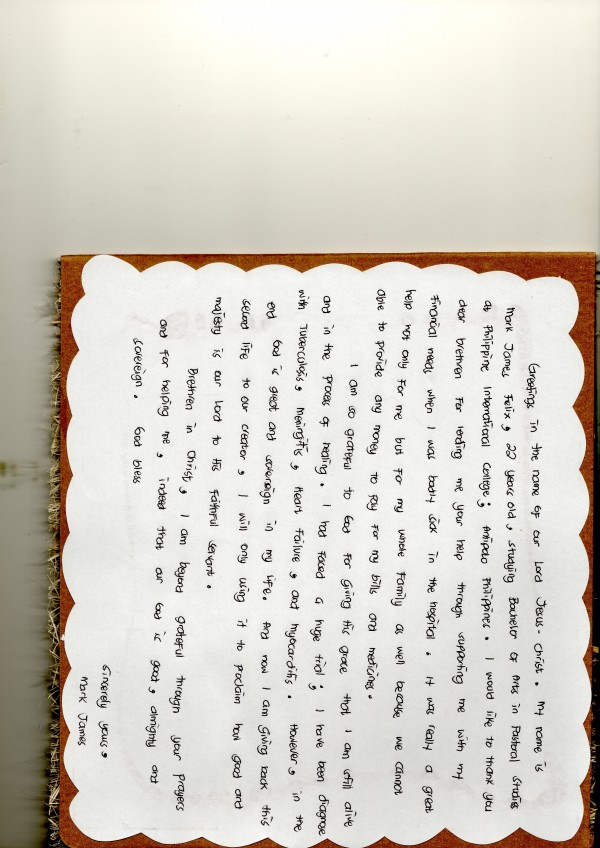 Greetings in the name of our Lord Jesus-Christ. My name is
Mark James Felix, 22 years old, studying Bachelor of Arts in Pastoral Studies
at Philippine International College, Antipolo Philippines. I would like to thank you
dear brethren for lending me your help through supporting me with my
financial needs when I was badly sick in the hospital. It was really a great
help not only for me but for my whole family as well because we cannot
able to provide any money to pay for my bills and medicines.
I am so grateful to God for giving His grace that I am still alive
and in the process of healing. I had faced a huge trial, I have been diagnose
with Tuberculosis, Meningitis, Heart Failure, and myocarditis. However, in the
end God is great and sovereign in my life. And now I am Giving back this
second life to our creator, I will only using it to proclaim how good and
majesty is our Lord to His faithful servant.
Brethren in Christ, I am beyond grateful through your prayers
and for helping me, indeed that our God is good, almighty and
sovereign. God bless
Sincerely yours,
Mark James